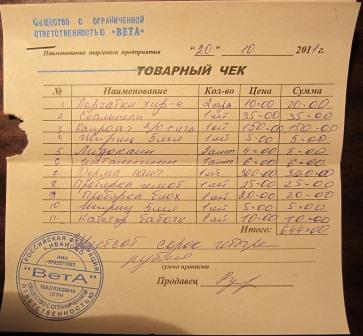 Общество с ограниченной
ответственностью "ВЕТА"
"20" 10 2011 г.
Наименование торгового предприятия
ТОВАРНЫЙ ЧЕК
№ Наименование Кол-во Цена Сумма
1 Перчатки хир-е 2 пара 10-00 20-00
2. Скальпель 1 шт 35-00 35-00
3 1 шт 150-00 150-00
4. Шприц 5 мл 1 шт 5-00 5-00
5 Лидокаин
6 1 шт 6-00 6-00
7 1 шт 300-00 300-00
8 Пробирка 1 шт 25-00 25-00
9 Пробирка 1 шт 20-00 20-00
10 Шприц 5 мл 1 шт 5-00 5-00
11. Катетер бабочк 1 шт 10-00 10-00
Итого: 644-00
Шестьсот сорок четыре
рубля
сумма прописью
Продавец
РОССИЙСКАЯ ФЕДЕРАЦИЯ
г. ИВАНОВО
ИНН
"ВетА"
ОГРН
ОБЩЕСТВО С ОГРАНИЧЕННОЙ ОТВЕТСТВЕННОСТЬЮ